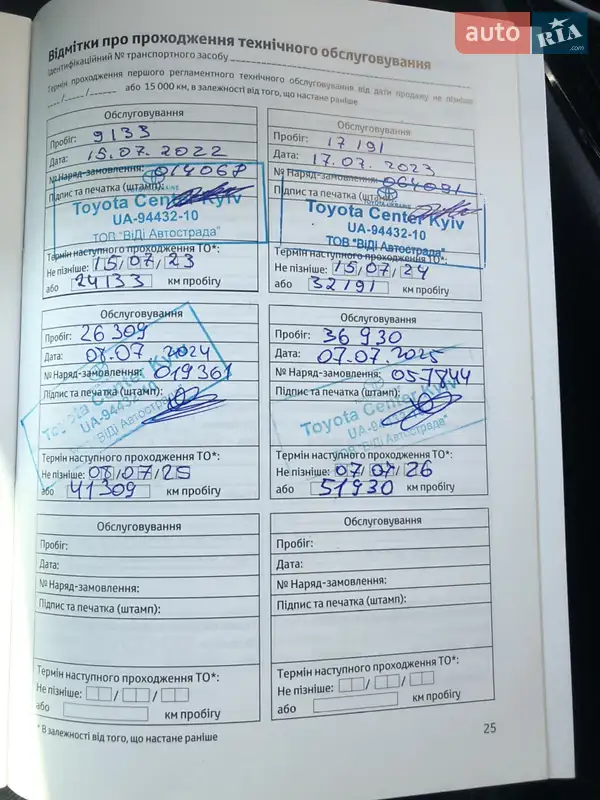 auto RIA .com
Відмітки про проходження технічного обслуговування
Ідентифікаційний № транспортного засобу
Термін проходження першого регламентного технічного обслуговування від дати продажу не пізніше
__/__/__ або 15 000 км, в залежності від того, що настане раніше
Обслуговування
Пробіг: 9133
Дата: 15.07.2022
№ Наряд-замовлення: 014067
Підпис та печатка (штамп):
Toyota Center Kyiv
UA-94432-10
ТОВ "ВіДі Автострада"
Термін наступного проходження ТО*:
Не пізніше: 15/07/23
або 24133 км пробігу
Обслуговування
Пробіг: 17191
Дата: 17.07.2023
№ Наряд-замовлення: 064091
Підпис та печатка (штамп):
TOYOTA UKRAINE
Toyota Center Kyiv
UA-94432-10
ТОВ "ВіДі Автострада"
Термін наступного проходження ТО*:
Не пізніше: 15/07/24
або 32191 км пробігу
Обслуговування
Пробіг: 26309
Дата: 08.07.2024
№ Наряд-замовлення: 019361
Підпис та печатка (штамп):
Toyota Center Kyiv
UA-94432-10
ТОВ "ВіДі Автострада"
Термін наступного проходження ТО*:
Не пізніше: 08/07/25
або 41309 км пробігу
Обслуговування
Пробіг: 36930
Дата: 07.07.2025
№ Наряд-замовлення: 057844
Підпис та печатка (штамп):
Toyota Center Kyiv
UA-94432-10
ТОВ "ВіДі Автострада"
Термін наступного проходження ТО*:
Не пізніше: 07/07/26
або 51930 км пробігу
Обслуговування
Пробіг:
Дата:
№ Наряд-замовлення:
Підпис та печатка (штамп):
Термін наступного проходження ТО*:
Не пізніше: / /
або км пробігу
Обслуговування
Пробіг:
Дата:
№ Наряд-замовлення:
Підпис та печатка (штамп):
Термін наступного проходження ТО*:
Не пізніше: / /
або км пробігу
* В залежності від того, що настане раніше
25